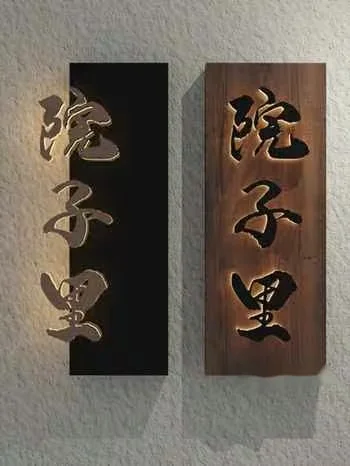 院子里
院子里